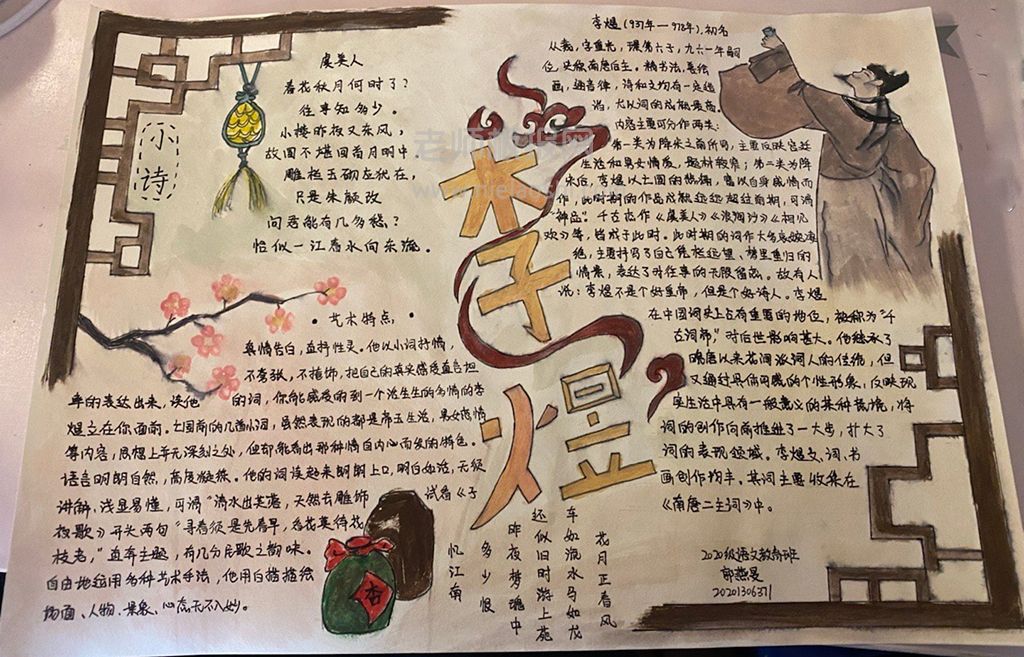 小诗
虞美人
春花秋月何时了？
往事知多少。
小楼昨夜又东风，
故国不堪回首月明中
雕栏玉砌应犹在，
只是朱颜改
问君能有几多愁？
恰似一江春水向东流。
李煜
李煜（937年—978年），初名
从嘉，字重光，璟第六子，九六一年嗣
位，史称南唐后主。精书法，善绘
画，通音律，诗和文均有一定造
诣，尤以词的成就最高。
内容主要可分作两类：
第一类为降宋之前所写，主要反映宫廷
生活和男女情爱，题材较窄；第二类为降
宋后，李煜以亡国的悲痛，富以自身感情而
作，此时期的作品成就远远超过前期，可谓
“神品”。千古杰作《虞美人》《浪淘沙》《相见
欢》等，皆成于此时。此时期的词作大多哀婉凄
绝，主要抒写了自己凭栏远望、梦里重归的
情景，表达了对往事的无限留恋。故有人
说：李煜不是个好皇帝，但是个好诗人。李煜
在中国词史上占有重要的地位，被称为“千
古词帝”，对后世影响甚大。他继承了
晚唐以来花间派词人的传统，但
又通过具体可感的个性形象，反映现
实生活中具有一般意义的某种意境，将
词的创作向前推进了一大步，扩大了
词的表现领域。李煜文、词、书
画创作均丰。其词主要收集在
《南唐二主词》中。
·艺术特点·
真情告白，直抒性灵。他以小词抒情，
不夸张，不掩饰，把自己的真实感受直言坦
率的表达出来，读他的词，你能感受的到一个活生生的多情的李
煜立在你面前。亡国前的几首小词，虽然表现的都是帝王生活，男女恋情
等内容，思想上并无深刻之处，但都能看出那种情自内心而发的特色。
语言明朗自然，高度凝练。他的词读起来朗朗上口，明白如话，无须
讲解，浅显易懂，可谓“清水出芙蓉，天然去雕饰 试看《子
夜歌》开头两句“寻春须是先春早，看花莫待花
枝老，”直奔主题，有几分民歌之韵味。
自由地运用多种艺术手法，他用白描描绘
场面、人物、景象、心态无不入妙。
忆江南
多少恨
昨夜梦魂中
还似旧时游上苑
车如流水马如龙
花月正春风
2020级语文教育班
20201306311